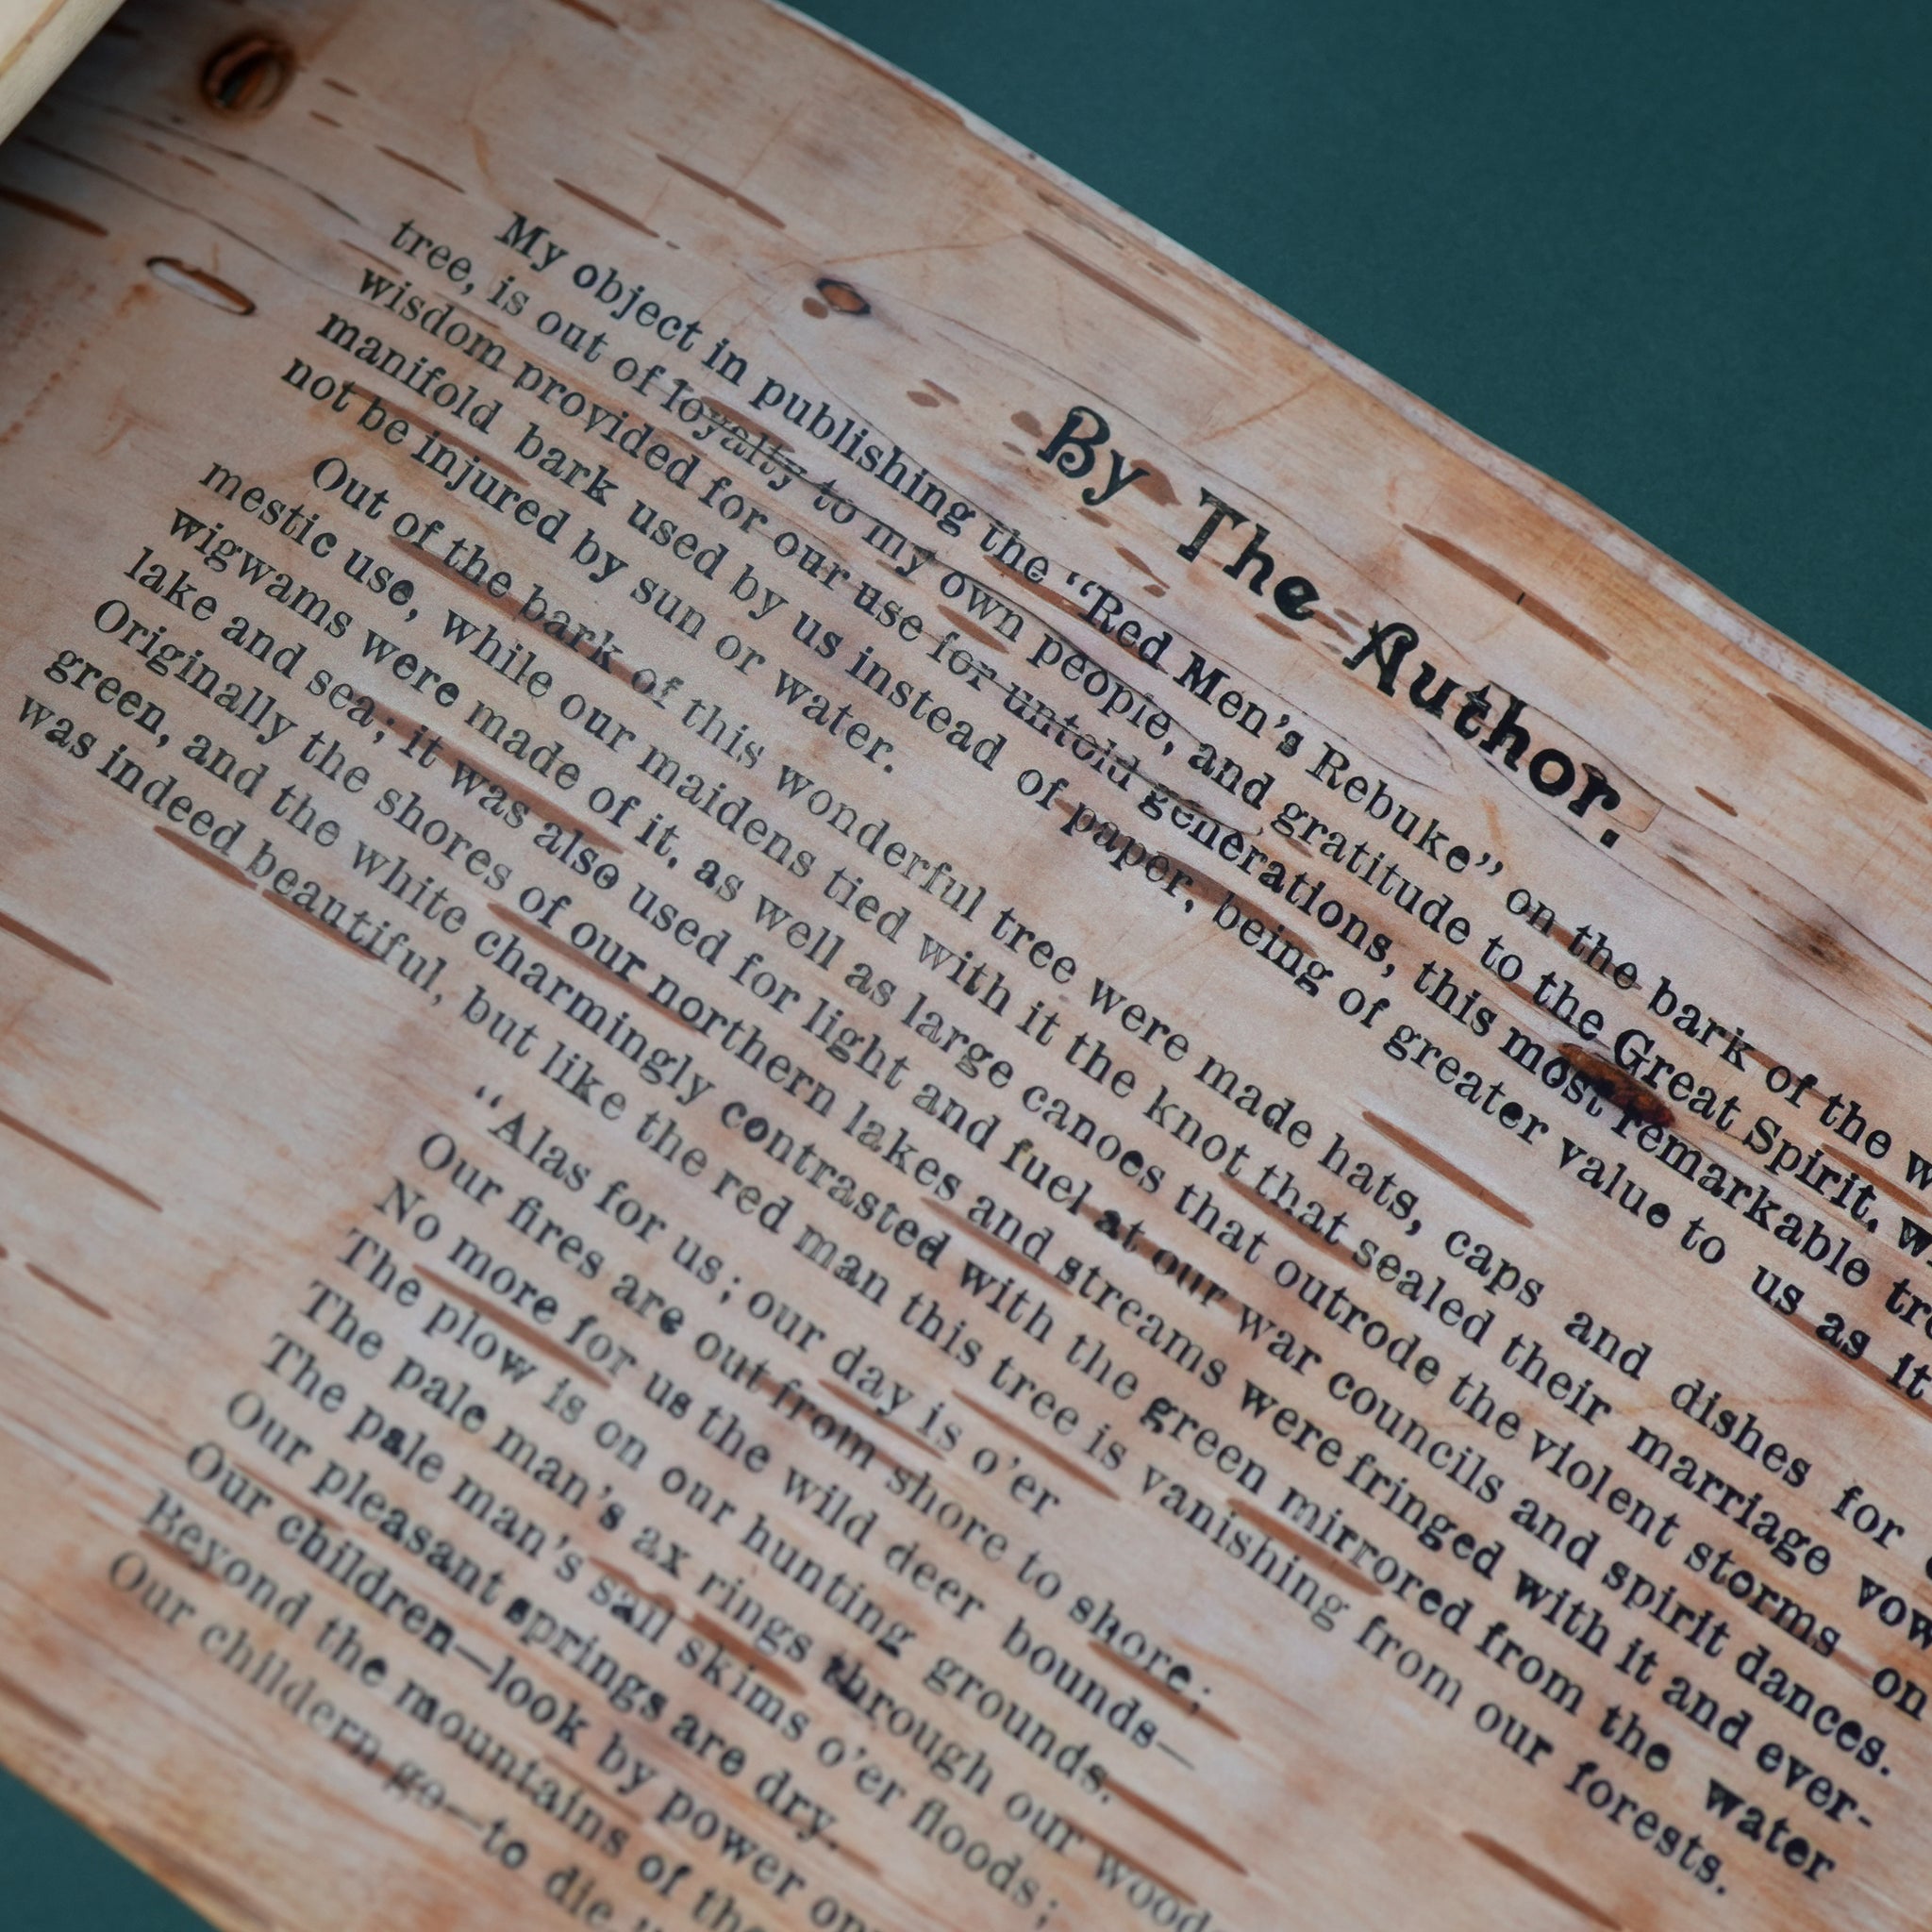 By The Author.
My object in publishing the “Red Men’s Rebuke” on the bark of the
tree, is out of loyalty to my own people, and gratitude to the Great Spirit,
wisdom provided for our use for untold generations, this most remarkable
manifold bark used by us instead of paper, being of greater value to us as it
not be injured by sun or water.
Out of the bark of this wonderful tree were made hats, caps and dishes for
mestic use, while our maidens tied with it the knot that sealed their marriage
wigwams were made of it, as well as large canoes that outrode the violent storms on
lake and sea; it was also used for light and fuel at our war councils and spirit dances.
Originally the shores of our northern lakes and streams were fringed with it and ever-
green, and the white charmingly contrasted with the green mirrored from the water
was indeed beautiful, but like the red man this tree is vanishing from our forests.
“Alas for us; our day is o’er
Our fires are out from shore to shore;
No more for us the wild deer bounds—
The plow is on our hunting grounds.
The pale man’s ax rings through our
The pale man’s sail skims o’er floods;
Our pleasant springs are dry.
Our children—look by power
Beyond the mountains of the
Our childern go—to die.”